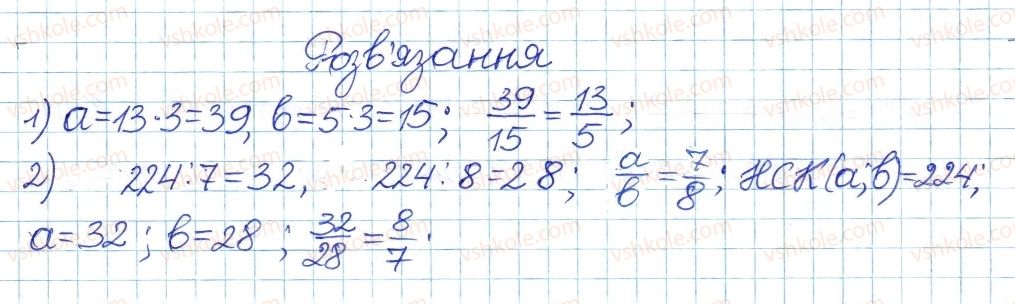 Розв'язання
1) a=13·3=39, b=5·3=15; 39/15 = 13/5;
2) 224:7=32, 224:8=28; a/b = 7/8; НСК(a;b)=224;
a=32; b=28; 32/28 = 8/7.